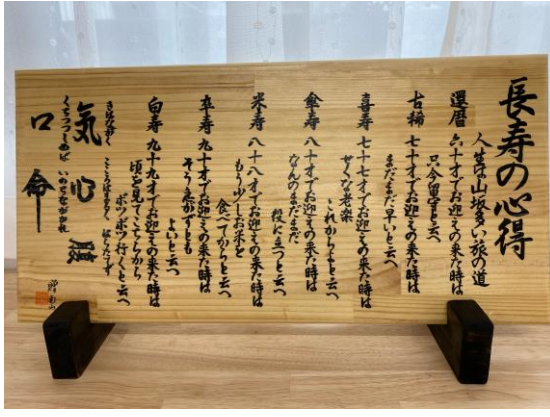 長寿の心得
人生は山坂多い旅の道
還暦 六十才でお迎えの来た時は
只今留守と云へ
古稀 七十才でお迎えの来た時は
まだまだ早いと云へ
喜寿 七十七才でお迎えの来た時は
せくな老楽
これからよと云へ
傘寿 八十才でお迎えの来た時は
なんのまだまだ
役に立つと云へ
米寿 八十八才でお迎えの来た時は
もう少しお米を
食べてからと云へ
卒寿 九十才でお迎えの来た時は
そう急がずとも
よいと云へ
白寿 九十九才でお迎えの来た時は
頃を見てこちらから
ボツボツ行くと云へ
気 心 腹
口 命